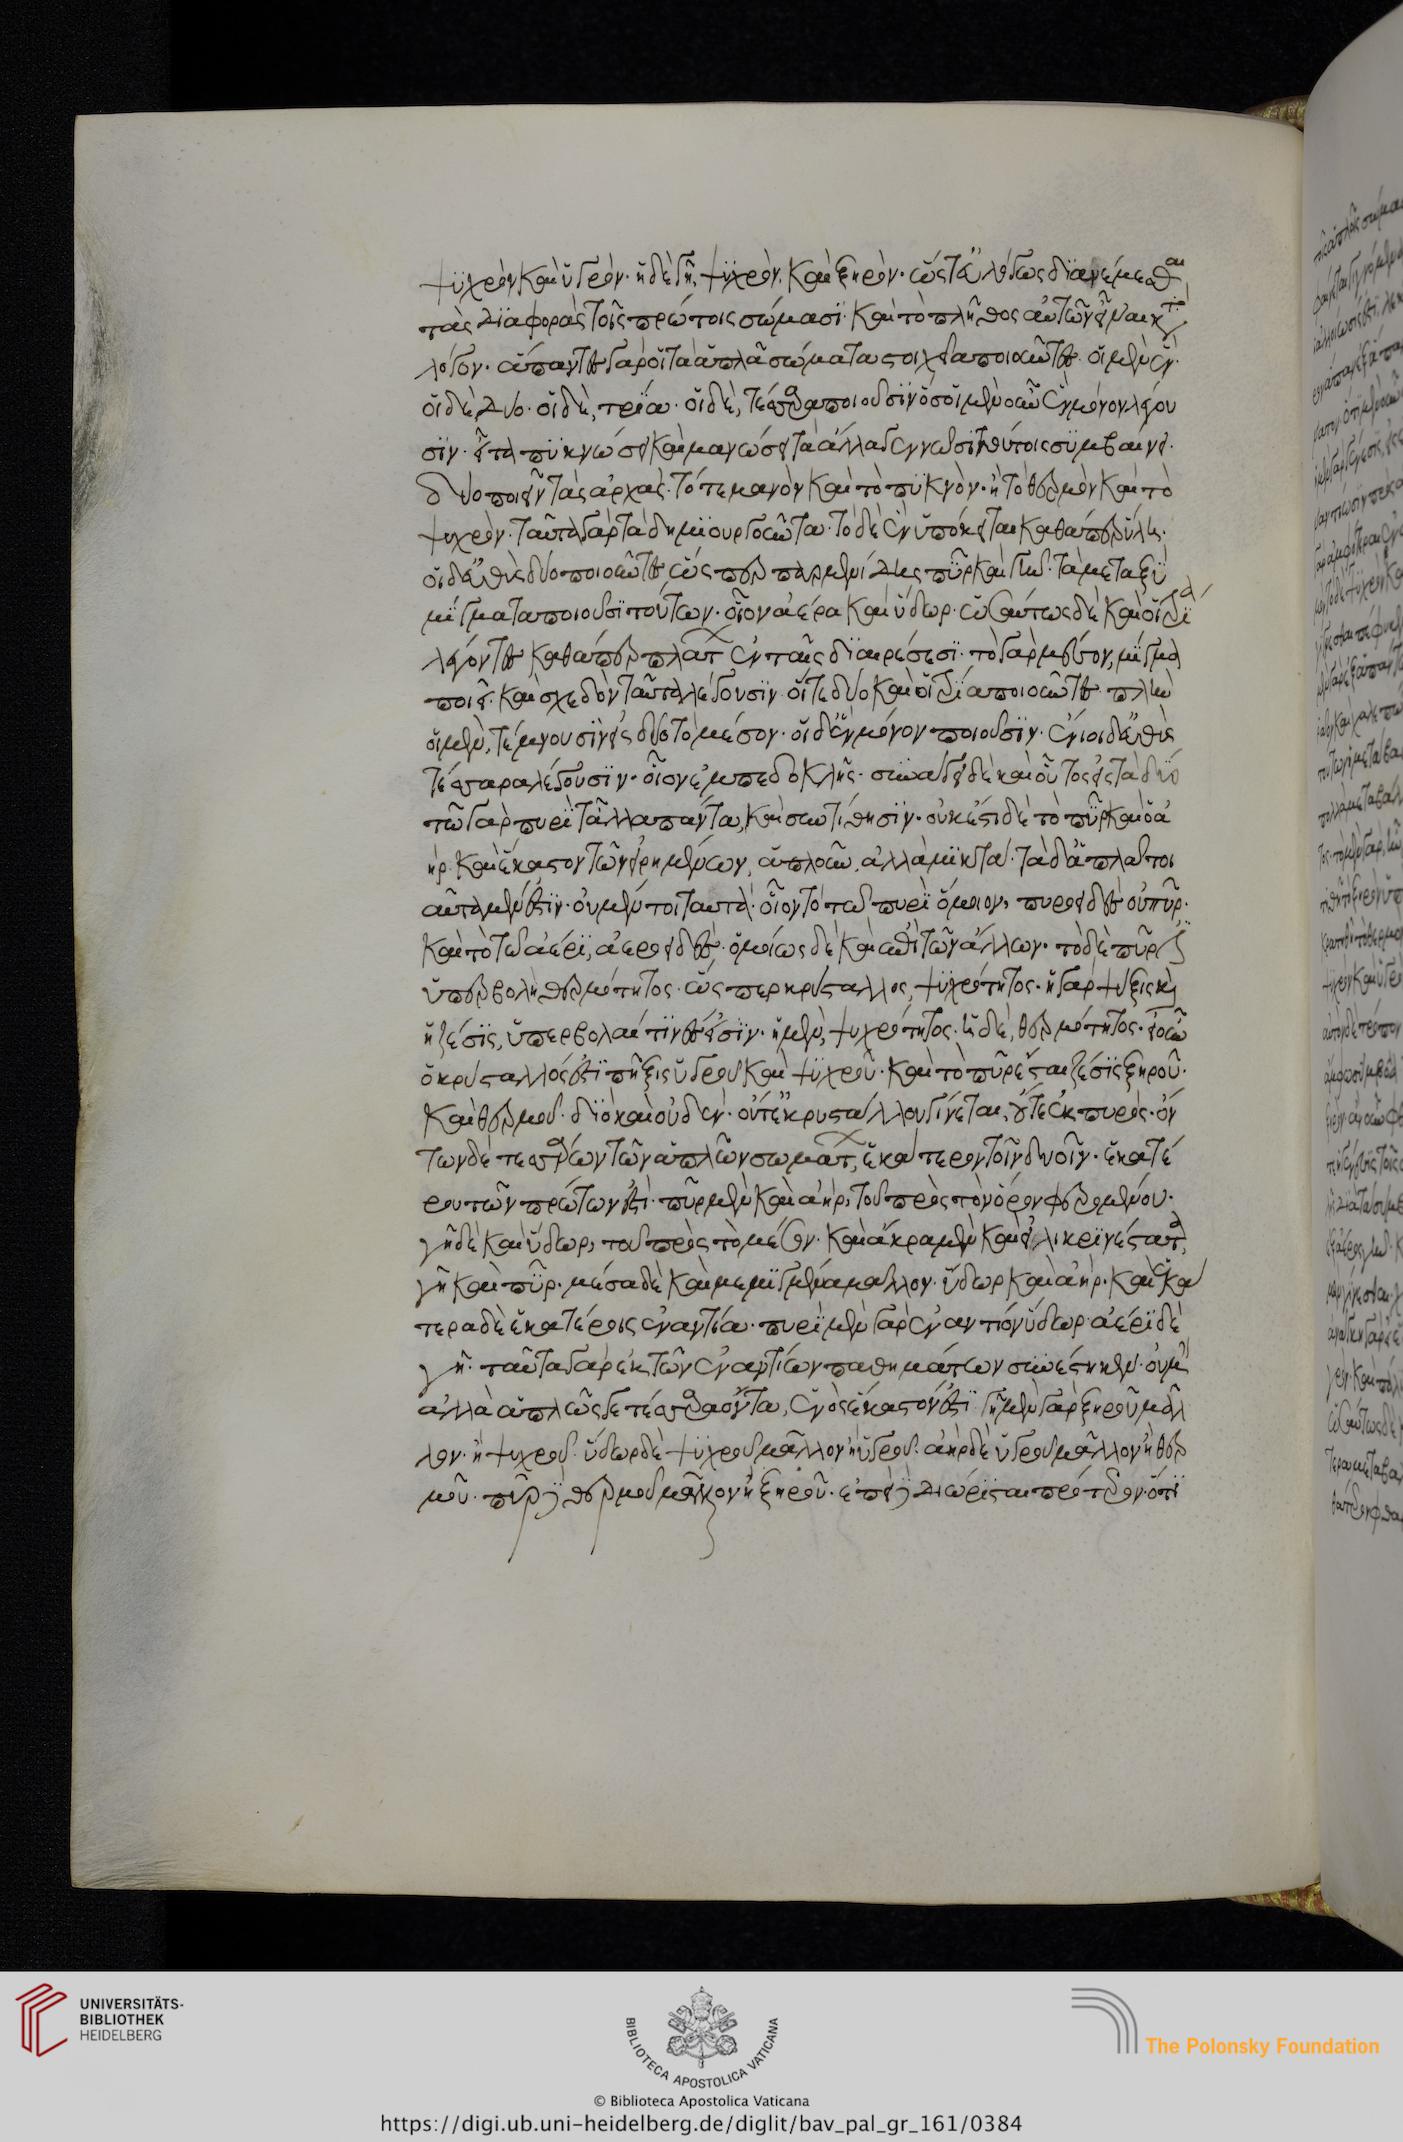 ψϋχρὸν καὶ ὑγρόν· ἡ δὲ γῆ, ψϋχρὸν καὶ ξηρόν· ὥστ' εὐλόγως διανέμεσθαι
τὰς διαφορὰς τοῖς πρώτοις σώμασϊ· καὶ τὸ πλῆθος αὐτῶν εἶναι κατὰ
λόγον· ἅπαντες γὰρ οἱ τὰ ἁπλᾶ σώματα στοιχεῖα ποιοῦντες· οἱ μὲν ἕν·
οἱ δὲ δύο· οἱ δὲ, τρία· οἱ δὲ, τέσσαρα ποιοῦσϊν· ὅσοι μὲν οὖν ἓν μόνον λέγου
σϊν· εἶτα πυκνώσει καὶ μανώσει τἆλλα γεννῶσϊ, τούτοις συμβαίνει
δύο ποιεῖν τὰς ἀρχὰς· τό τε μανὸν καὶ τὸ πυκνὸν· ἢ τὸ θερμὸν καὶ τὸ
ψυχρὸν· ταῦτα γὰρ τὰ δημϊουργοῦντα· τὸ δὲ ἓν ὑπόκειται καθάπερ ὕλη·
οἱ δ' εὐθὺς δύο ποιοῦντες ὥσπερ παρμενίδης πῦρ καὶ γῆν· τὰ μεταξὺ
μίγματα ποιοῦσϊ τούτων· οἷον ἀέρα καὶ ὕδωρ· ὡσαύτως δὲ καὶ οἱ τρία
λέγοντες καθάπερ πλάτων ἐν ταῖς διαιρέσεσϊ· τὸ γὰρ μέσον, μίγμα
ποιεῖ· καὶ σχεδὸν ταῦτα λέγουσϊν οἵ τε δύο καὶ οἱ τρία ποιοῦντες· πλὴν
οἱ μὲν, τέμνουσϊν εἰς δύο τὸ μέσον· οἱ δ' ἓν μόνον ποιοῦσϊν· ἔνιοι δ' εὐθὺς
τέσσαρα λέγουσϊν· οἷον ἐμπεδοκλῆς· συνάγει δὲ καὶ οὗτος εἰς τὰ δύο
τῷ γὰρ πυρὶ τἆλλα πάντα καὶ συντίθησϊν· οὐκ ἔστι δὲ τὸ πῦρ καὶ ὁ ἀ
ήρ· καὶ ἕκαστον τῶν εἰρημένων, ἁπλοῦν, ἀλλὰ μικτά· τὰ δ' ἁπλᾶ τοι
αῦτα μέν ἐστϊν· οὐ μέντοι ταυτά· οἷον τὸ τῷ πυρὶ ὅμοιον, πυροειδὲς οὐ πῦρ·
καὶ τὸ τῷ ἀέρϊ, ἀεροειδὲς· ὁμοίως δὲ καὶ ἐπὶ τῶν ἄλλων· τὸ δὲ πῦρ ἐστὶ
ὑπερβολὴ θερμότητος· ὥσπερ κρύσταλλος, ψϋχρότητος· ἡ γὰρ ψύξις καὶ
ἡ ζέσϊς, ὑπερβολαί τϊνές εἰσϊν· ἡ μὲν, ψυχρότητος· ἡ δὲ, θερμότητος· εἰ οὖν
ὁ κρύσταλλός ἐστϊ πῆξις ὑγροῦ καὶ ψϋχροῦ· καὶ τὸ πῦρ ἔσται ζέσϊς ξηροῦ·
καὶ θερμοῦ· διὸ καὶ οὐδὲν· οὔτ' ἐκ κρυστάλλου γίνεται, οὔτε ἐκ πυρὸς· ὄν
των δὲ τεσσάρων τῶν ἁπλῶν σωμάτων, ἑκάτερον τοῖν δυοῖν· ἑκατέ
ρου τῶν πρώτων ἐστὶ· πῦρ μὲν καὶ ἀὴρ, τοῦ πρὸς τὸν ὅρον φερομένου·
γῆ δὲ καὶ ὕδωρ, τοῦ πρὸς τὸ μέσον· καὶ ἄκρα μὲν καὶ εἰλικρϊνέστατα,
γῆ καὶ πῦρ· μέσα δὲ καὶ μεμιγμένα μᾶλλον· ὕδωρ καὶ ἀὴρ· καὶ ἑκά
τερα δὲ ἑκατέροις ἐναντία· πυρὶ μὲν γὰρ ἐναντίον ὕδωρ· ἀέρϊ δὲ
γῆ· ταῦτα γὰρ ἐκ τῶν ἐναντίων παθημάτων συνέστηκεν· οὐ μὴν
ἀλλὰ ἁπλῶς γε τέσσαρα ὄντα, ἑνὸς ἕκαστόν ἐστϊ· γῆ μὲν γὰρ ξηροῦ μᾶλ
λον· ἢ ψυχροῦ· ὕδωρ δὲ ψϋχροῦ μᾶλλον ἢ ὑγροῦ· ἀὴρ δὲ ὑγροῦ μᾶλλον ἢ θερ
μοῦ· πῦρ δὲ θερμοῦ μᾶλλον ἢ ξηροῦ· ἐπεὶ δὲ διώρισται πρότερον· ὅτϊ
UNIVERSITÄTS-
BIBLIOTHEK
HEIDELBERG
BIBLIOTECA APOSTOLICA VATICANA
The Polonsky Foundation
© Biblioteca Apostolica Vaticana
https://digi.ub.uni-heidelberg.de/diglit/bav_pal_gr_161/0384